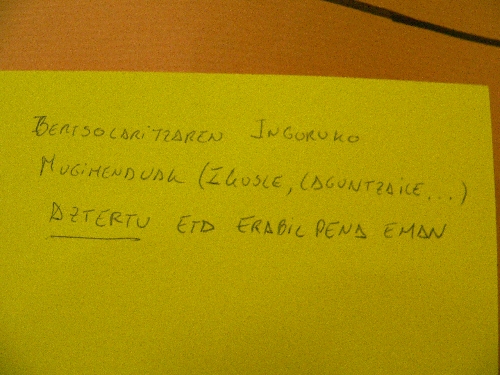 BERTSOLARITZAREN INGURUKO
MUGIMENDUAK (IKUSLE, LAGUNTZAILE...)
AZTERTU ETA ERABILPENA EMAN